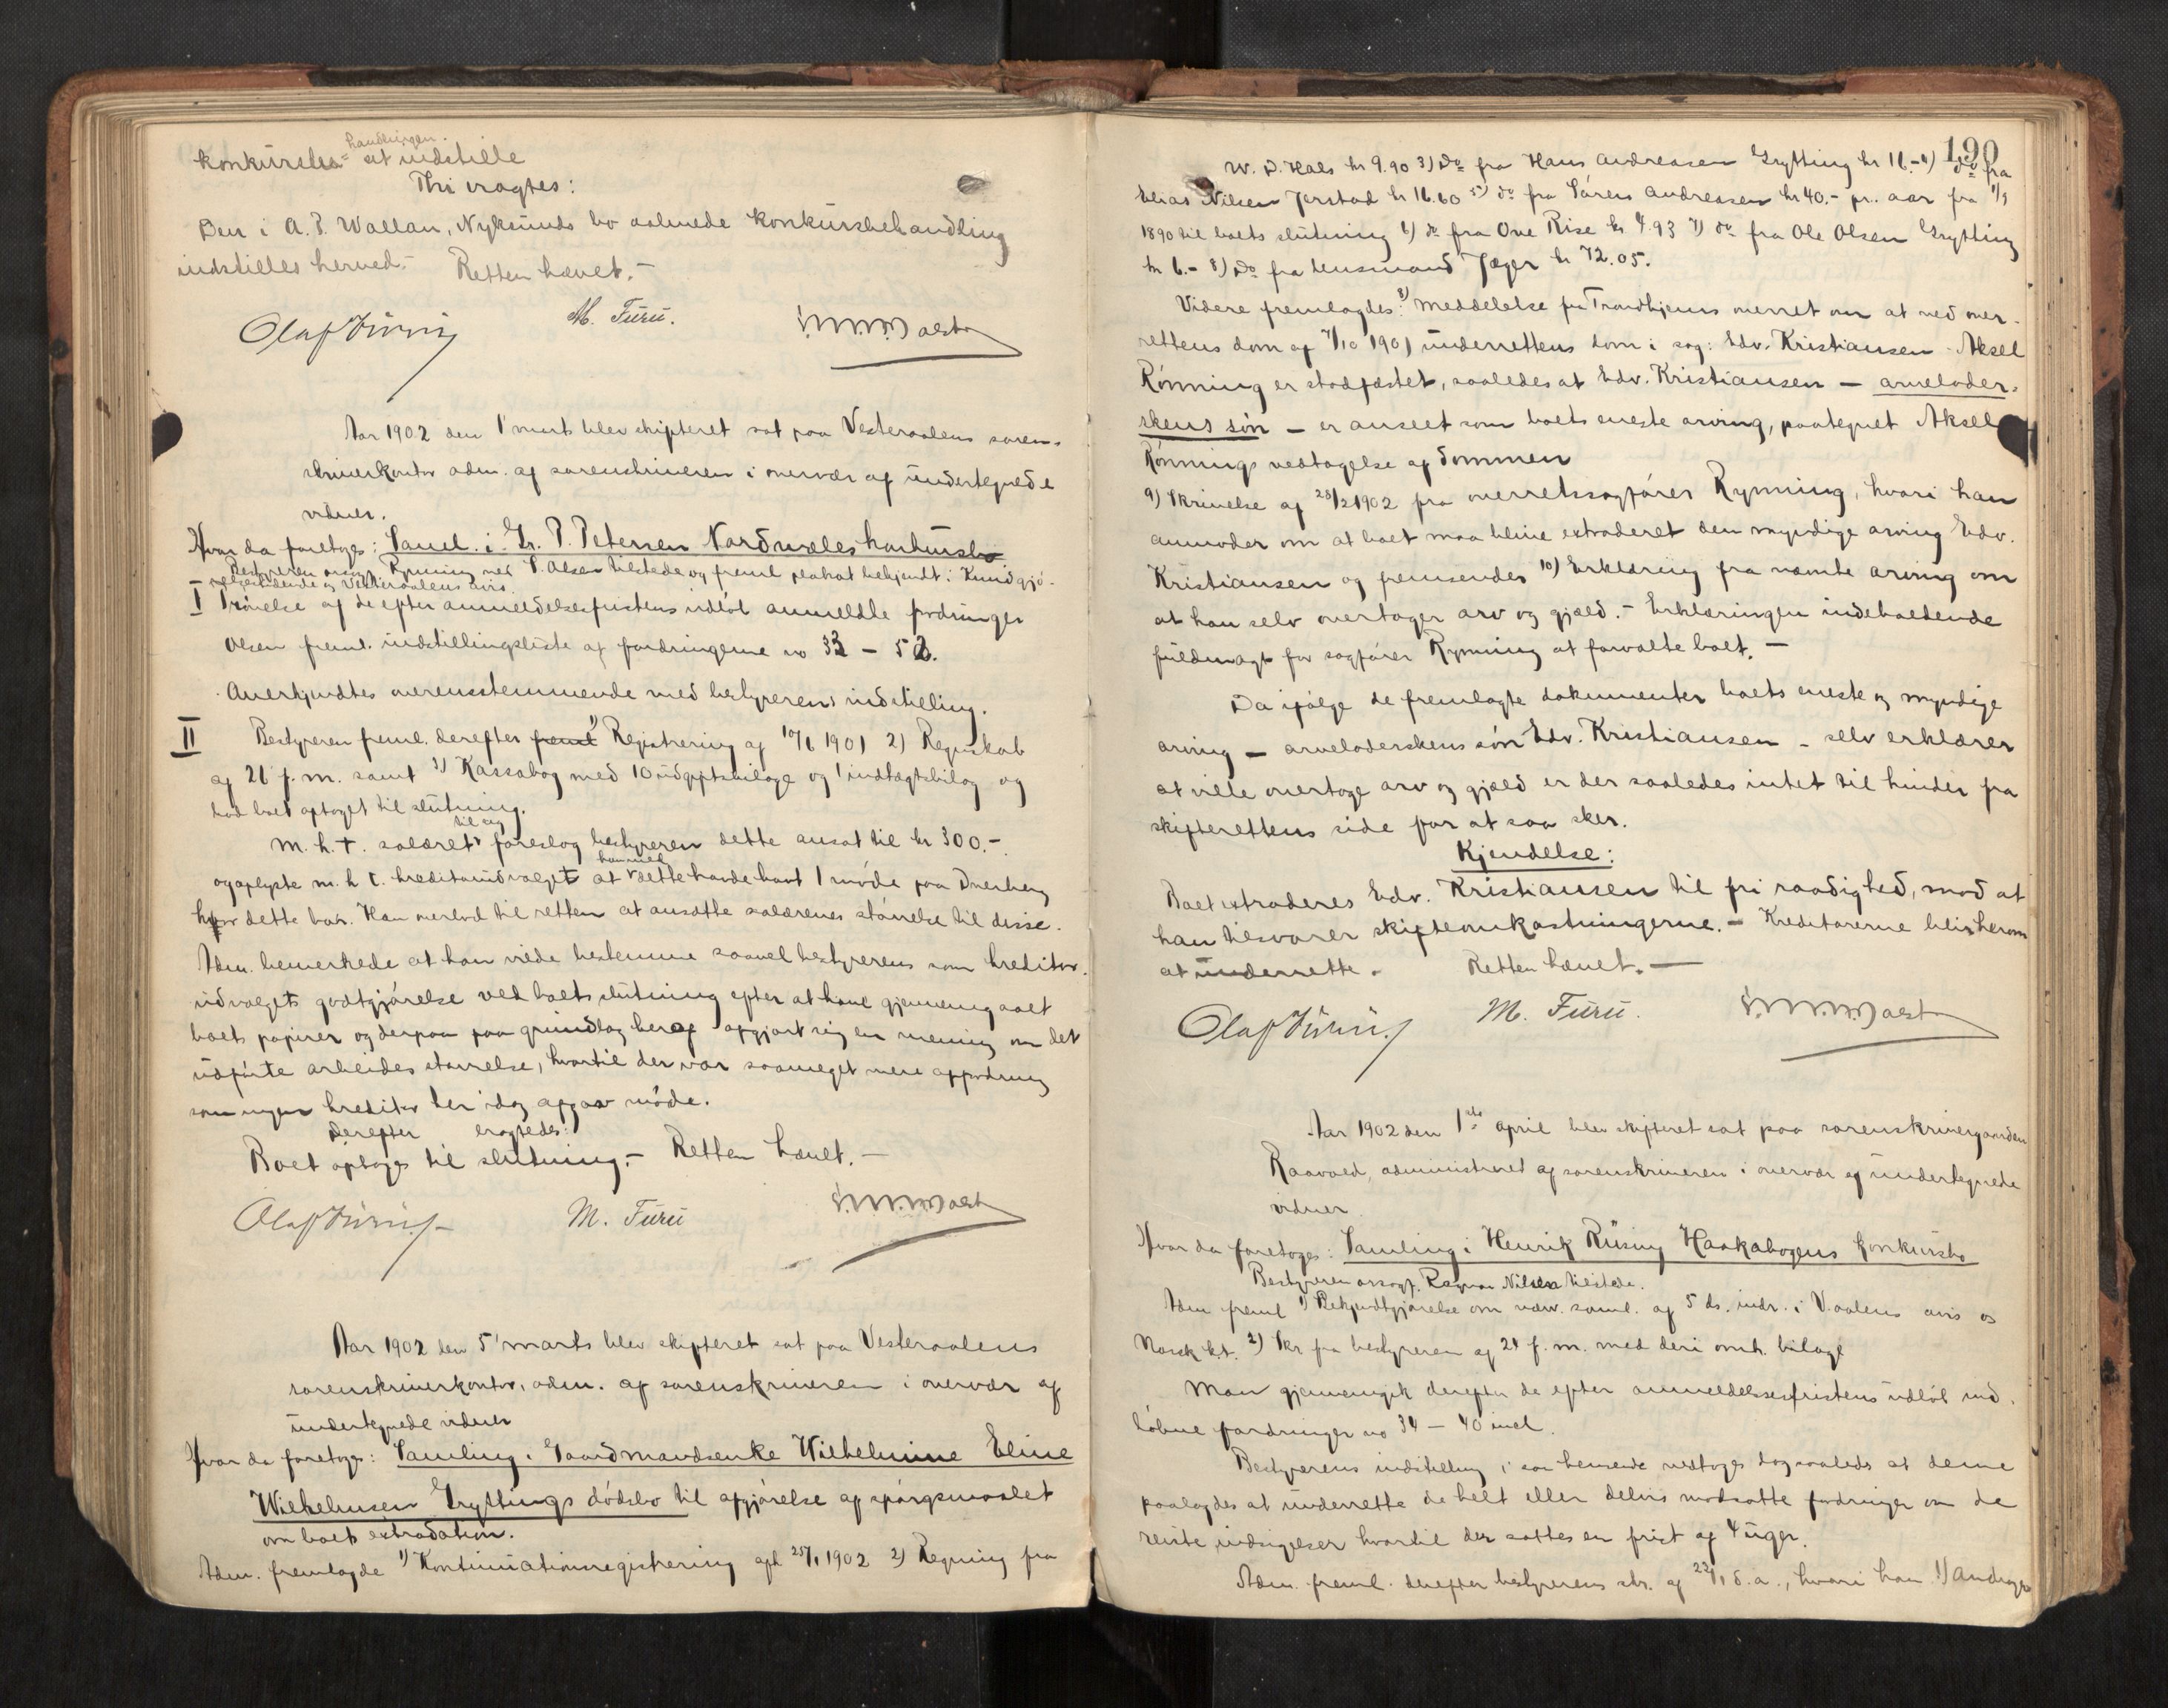 konkursbe= handlingen at indstille
Thi vragtes:
Den i A. P. Wallan, Nyksunds bo aabnede konkursbehandling
indstilles herved.- Retten hævet.-
M. Furu.
Aar 1902 den 1 marts blev skifteret sat paa Vesteraalens soren=
skriverkontor adm. af sorenskriveren i overvær af undertegnede
vidner.
Hvor da foretoges: Saml. i Gr. P. Petersen Nordwales konkursbo
Bestyreren Rynning ved P. Olsen tilstede og freml. plakat bekjendt i Kundgjø-
relsestidende og Vesteraalens avis.
I Prøvelse af de efter anmeldelsesfristens udløb anmeldte fordringer
Olsen freml. indstillingsliste af fordringerne no 33 - 52.
Anerkjendtes overensstemmende med bestyrerens indstilling.
II Bestyreren freml. derefter freml 1) Registrering af 10/6 1901 2) Regnskab
af 26 f. m. samt 3) Kassabog med 10 udgiftsbilage og 1 indtægtsbilag og
bad boet optaget til slutning.
M. h. t. salæret til sig foreslog bestyreren dette ansat til kr 300.-
og oplyste m. h. t. kreditorudvalget at dette havde havt 1 møde paa
for dette bo. Han overlod til retten at ansætte salærenes størrelse til disse.
Adm. bemerkede at han vilde bestemme saavel bestyrerens som kreditor=
udvalgets godtgjørelse ved boets slutning efter at have gjennemgaaet
boets papirer og derpaa paa grundlag heraf opgjort sig en mening om det
udførte arbeides størrelse, hvortil der var saameget mere opfordring
som ingen kreditor her idag afgav møde.
Derefter eragtedes:
Boet optages til slutning.- Retten hævet.-
M. Furu
Aar 1902 den 5 marts blev skifteret sat paa Vesteraalens
sorenskriverkontor, adm. af sorenskriveren i overvær af
undertegnede vidner
Hvor da foretoges: Samling i Gaardmandsenke Wilhelmine Eline
Wilhelmsen Gryttings dødsbo til afgjørelse af spørgsmaalet
om boets extradation.
Adm. fremlagde 1) Kontinuationsregistrering afh 25/1 1902 2) Regning fra
190
W. D. Hals kr 9.90 3) Do fra Hans Andreasen Grytting kr 16.- 4) do fra
Elias Nilsen Jerstad kr 16.60 5) do fra Søren Andreasen kr 40.- pr. aar fra 1/9
1890 til boets slutning 6) do fra Ove Rise kr 4.93 7) do fra Ole Olsen Grytting
kr 6.- 8) Do fra lensmand Jæger kr 72.05.
Videre fremlagdes: 8) Meddelelse fra Trondhjems overret om at ved over-
rettens dom af 7/10 1901 underrettens dom i sag: Edv. Kristiansen - Aksel
Rönning er stadfæstet, saaledes at Edv. Kristiansen - arvelader=
skens søn - er anseet som boets eneste arving, paategnet Aksel
Rönnings vedtagelse af dommen
9) Skrivelse af 28/2 1902 fra overretssagfører Rynning, hvori han
anmoder om at boet maa blive extraderet den myndige arving Edv.
Kristiansen og fremsender 10) Erklæring fra nævnte arving om
at han selv overtager arv og gjæld.- Erklæringen indeholdende
fuldmagt for sagfører Rynning at forvalte boet.-
Da ifølge de fremlagte dokumenter boets eneste og myndige
arving - arveladerskens søn Edv. Kristiansen - selv erklærer
at ville overtage arv og gjæld er der saaledes intet til hinder fra
skifterettens side for at saa sker.
Kjendelse:
Boet extraderes Edv. Kristiansen til fri raadighed, mod at
han tilsvarer skifteomkostningerne.- Kreditorerne blir herom
at underrette. Retten hævet.-
M. Furu.
Aar 1902 den 1ste april blev skifteret sat paa sorenskrivergaarden
Raavoed, administreret af sorenskriveren i overvær af undertegnede
vidner
Hvor da foretoges: Samling i Henrik Rüsing Haakabogens konkursbo
Bestyreren orsagf. Ragnar Nilsen tilstede.
Adm freml 1) Bekjendtgjørelse om nærv. saml. af 5 ds. indr. i V.aalens avis og
Norsk k.t. 2) Skr fra bestyreren af 24 f. m. med deri omh. bilage
Man gjennemgik derefter de efter anmeldelsesfristens udløb ind-
løbne fordringer no 34 - 40 incl.
Bestyrerens indstilling i saa henseende vedtoges dog saaledes at denne
paalagdes at underrette de helt eller delvis modsatte fordringer om de
reiste indsigelser hvortil der sattes en frist af 4 uger.
Adm. freml. derefter bestyrerens skr. af 22/1 d. a., hvori han 1) Andrager